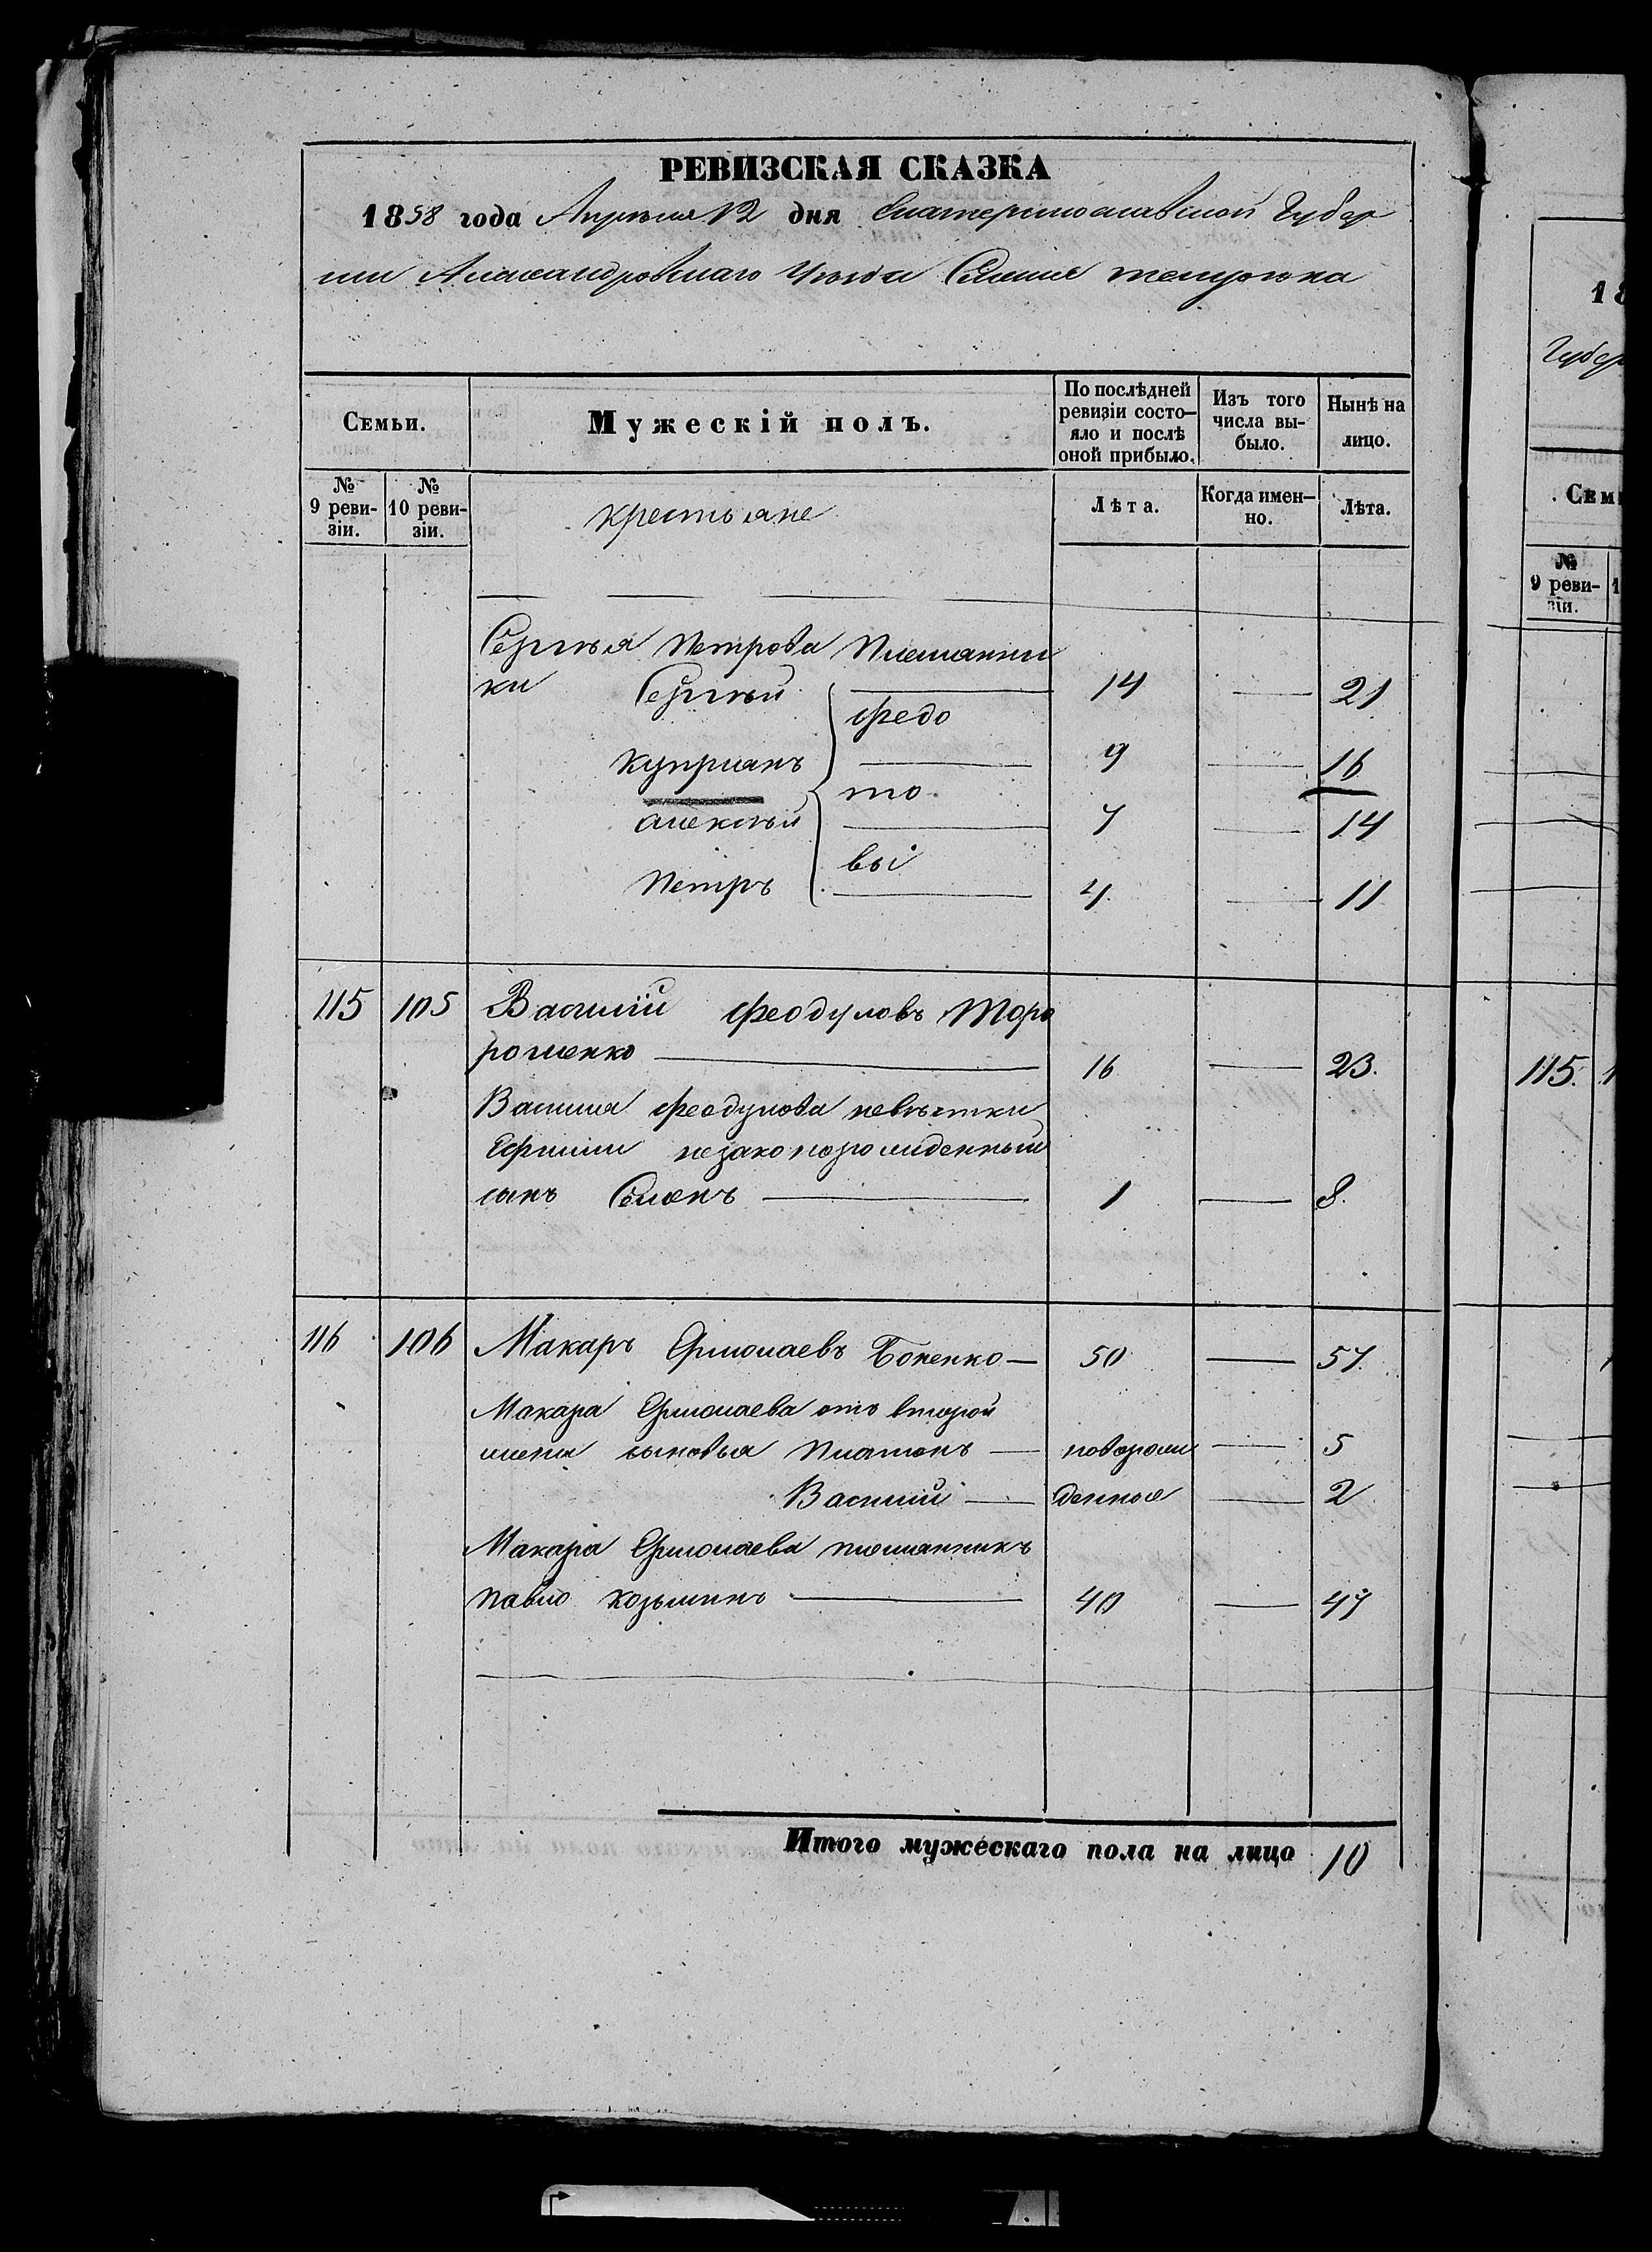 РЕВИЗСКАЯ СКАЗКА
1858 года Апреля 12 дня Екатеринославской Губер
нии Александровскаго Уезда Селение
Семьи.
Мужескій полъ.
По послѣдней ревизіи состо-яло и послѣ оной прибыло.
Изъ того числа вы-было.
Нынѣ на лицо.
№ 9 реви-зіи.
№ 10 реви-зіи.
крестьяне
Лѣта.
Когда имен-но.
Лѣта.
Сергѣя Петрова Племянни
ки Сергѣй 14 — 21
Федо
Куприанъ 9 — 16
то
алексѣй 7 — 14
вы
Петръ 4. — 11
115 105 Василій Феодуловъ Торо
рошенко 16 — 23.
Василия Феодулова невѣстки
Ефимии незаконорожденный
сынъ Семенъ — 1 — 8.
116 106 Макаръ Ермолаевъ Боненко — 50 — 57.
Макара Ермолаева отъ второй
жены сыновья Платонъ — новорож — 5
Василий — денные — 2
Макара Ермолаева племянникъ
павло козьминъ — 40 — 47
Итого мужескаго пола на лицо 10
18
Губер
Сем
№ 9 реви-зіи.
1
115. 1